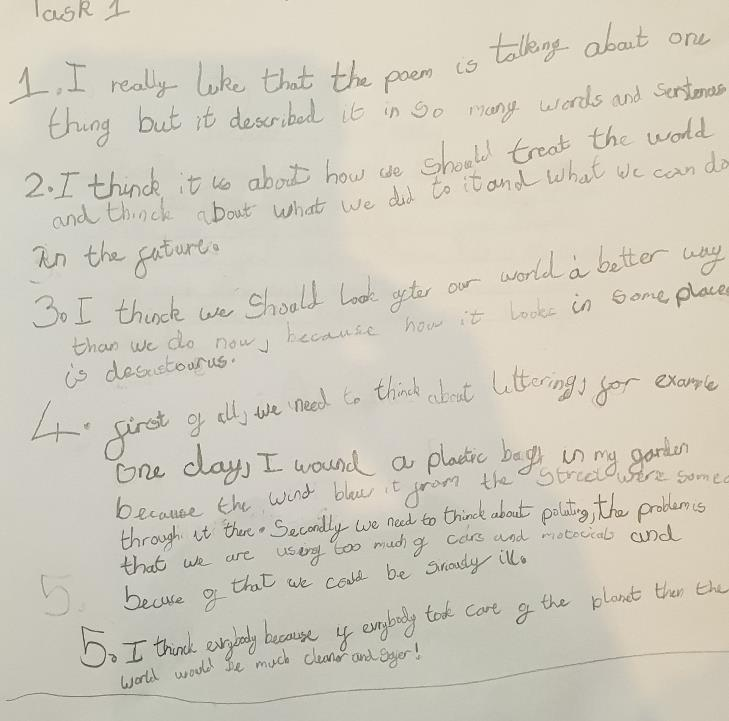 Task 1
1. I really like that the poem is talking about one
thing but it described it in so many words and sentences
2. I thinck it is about how we should treat the world
and thinck about what we did to it and what we can do
in the future.
3. I thinck we should look after our world a better way
than we do now, because how it looks in some places
is desistourus.
4. first of all, we need to thinck about littering, for example
one day, I wound a plastic bags in my garden
because the wind blew it from the street were some
through it there. Secondly we need to thinck about poluting, the problem is
that we are using too much of cars and motocicals and
becuse of that we could be siriously ill.
5.
5. I thinck evrybody because if evrybody took care of the planet then the
world would be much cleaner and safer!